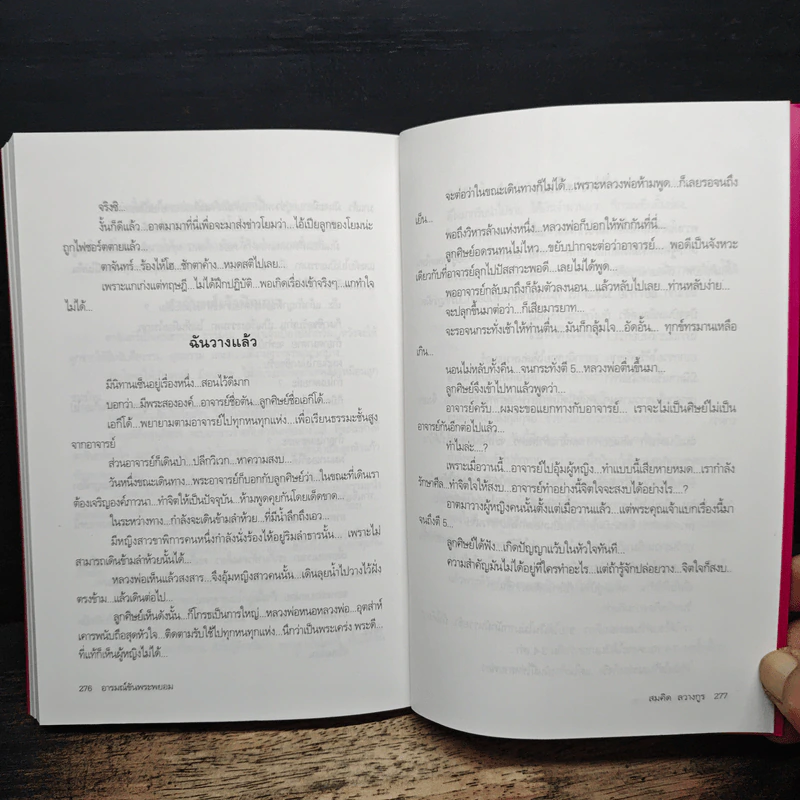 จริงซิ...
งั้นก็ดีแล้ว...อาตมามาที่นี่เพื่อจะมาส่งข่าวโยมว่า...ไอ้เปียลูกของโยมน่ะ
ถูกไฟชอร์ตตายแล้ว...
ตาจันทร์...ร้องไห้โฮ...ชักตาค้าง...หมดสติไปเลย...
เพราะแกเก่งแต่ทฤษฎี...ไม่ได้ฝึกปฏิบัติ...พอเกิดเรื่องเข้าจริงๆ...แกทำใจ
ไม่ได้...
ฉันวางแล้ว
มีนิทานเซ็นอยู่เรื่องหนึ่ง...สอนไว้ดีมาก
บอกว่า...มีพระสององค์...อาจารย์ชื่อตัน...ลูกศิษย์ชื่อเอกิโด้...
เอกิโด้...พยายามตามอาจารย์ไปทุกหนทุกแห่ง...เพื่อเรียนธรรมะชั้นสูง
จากอาจารย์
ส่วนอาจารย์ก็เดินป่า...ปลีกวิเวก...หาความสงบ...
วันหนึ่งขณะเดินทาง...พระอาจารย์ก็บอกกับลูกศิษย์ว่า...ในขณะที่เดินเรา
ต้องเจริญองค์ภาวนา...ทำจิตให้เป็นปัจจุบัน...ห้ามพูดคุยกันโดยเด็ดขาด...
ในระหว่างทาง...กำลังจะเดินข้ามลำห้วย...ที่มีน้ำลึกถึงเอว...
มีหญิงสาวขาพิการคนหนึ่งกำลังนั่งร้องไห้อยู่ริมลำธารนั้น... เพราะไม่
สามารถเดินข้ามลำห้วยนั้นได้...
หลวงพ่อเห็นแล้วสงสาร...จึงอุ้มหญิงสาวคนนั้น...เดินลุยน้ำไปวางไว้ฝั่ง
ตรงข้าม...แล้วเดินต่อไป...
ลูกศิษย์เห็นดังนั้น...ก็โกรธเป็นการใหญ่...หลวงพ่อหนอหลวงพ่อ...อุตส่าห์
เคารพนับถือสุดหัวใจ...ติดตามรับใช้ไปทุกหนทุกแห่ง...นึกว่าเป็นพระเคร่ง พระดี...
ที่แท้ก็เห็นผู้หญิงไม่ได้...
276 อารมณ์ขันพระพยอม
จะต่อว่าในขณะเดินทางก็ไม่ได้...เพราะหลวงพ่อห้ามพูด...ก็เลยรอจนถึง
เย็น...
พอถึงวิหารล้างแห่งหนึ่ง...หลวงพ่อก็บอกให้พักกันที่นี่...
ลูกศิษย์อดรนทนไม่ไหว...ขยับปากจะต่อว่าอาจารย์... พอดีเป็นจังหวะ
เดียวกับที่อาจารย์ลุกไปปัสสาวะพอดี...เลยไม่ได้พูด...
พออาจารย์กลับมาถึงก็ล้มตัวลงนอน... แล้วหลับไปเลย...ท่านหลับง่าย...
จะปลุกขึ้นมาต่อว่า...ก็เสียมารยาท...
จะรอจนกระทั่งเช้าให้ท่านตื่น...มันก็กลุ้มใจ...อัดอั้น... ทุกข์ทรมานเหลือ
เกิน...
นอนไม่หลับทั้งคืน...จนกระทั่งตี 5...หลวงพ่อตื่นขึ้นมา...
ลูกศิษย์จึงเข้าไปหาแล้วพูดว่า...
อาจารย์ครับ...ผมจะขอแยกทางกับอาจารย์... เราจะไม่เป็นศิษย์ไม่เป็น
อาจารย์กันอีกต่อไปแล้ว...
ทำไมล่ะ....?
เพราะเมื่อวานนี้...อาจารย์ไปอุ้มผู้หญิง...ทำแบบนี้เสียหายหมด...เรากำลัง
รักษาศีล...ทำจิตใจให้สงบ...อาจารย์ทำอย่างนี้จิตใจจะสงบได้อย่างไร....?
อาตมาวางผู้หญิงคนนั้นตั้งแต่เมื่อวานแล้ว...แต่พระคุณเจ้าแบกเรื่องนี้มา
จนถึงตี 5...
ลูกศิษย์ได้ฟัง...เกิดปัญญาแว้บในหัวใจทันที...
ความสำคัญมันไม่ได้อยู่ที่ใครทำอะไร...แต่ถ้ารู้จักปล่อยวาง...จิตใจก็สงบ...
สมคิด ลวางกูร 277